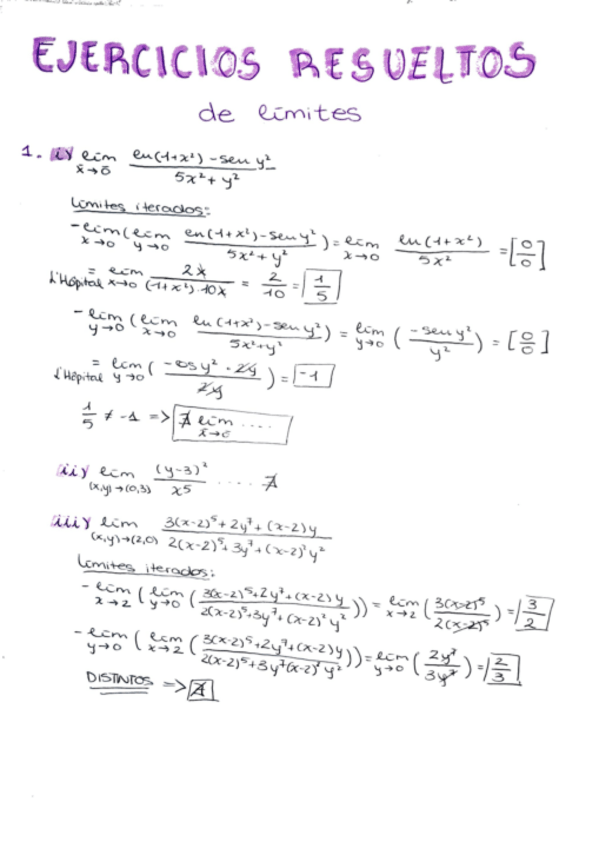 EJERCICIOS RESUELTOS
de límites
1. i) lim x̄→ō (ln(1+x²)-sen y²)/(5x²+y²)
Límites iterados:
- lim x→0 (lim y→0 (ln(1+x²)-sen y²)/(5x²+y²)) = lim x→0 ln(1+x²)/5x² = [0/0]
= L'Hôpital lim x→0 2x/((1+x²)·10x) = 2/10 = 1/5
- lim y→0 (lim x→0 (ln(1+x²)-sen y²)/(5x²+y²)) = lim y→0 (-sen y²/y²) = [0/0]
= L'Hôpital lim y→0 (-cos y²·2y/2y) = -1
1/5 ≠ -1 => ∄ lim x̄→ō ....
ii) lim (x,y)→(0,3) (y-3)²/x⁵ ..... ∄
iii) lim (x,y)→(2,0) (3(x-2)⁵+2y⁷+(x-2)y)/(2(x-2)⁵+3y⁷+(x-2)²y²)
Límites iterados:
- lim x→2 (lim y→0 (3(x-2)⁵+2y⁷+(x-2)y)/(2(x-2)⁵+3y⁷+(x-2)²y²)) = lim x→2 (3(x-2)⁵/2(x-2)⁵) = 3/2
- lim y→0 (lim x→2 (3(x-2)⁵+2y⁷+(x-2)y)/(2(x-2)⁵+3y⁷(x-2)²y²)) = lim y→0 (2y⁷/3y⁷) = 2/3
DISTINTOS => ∄